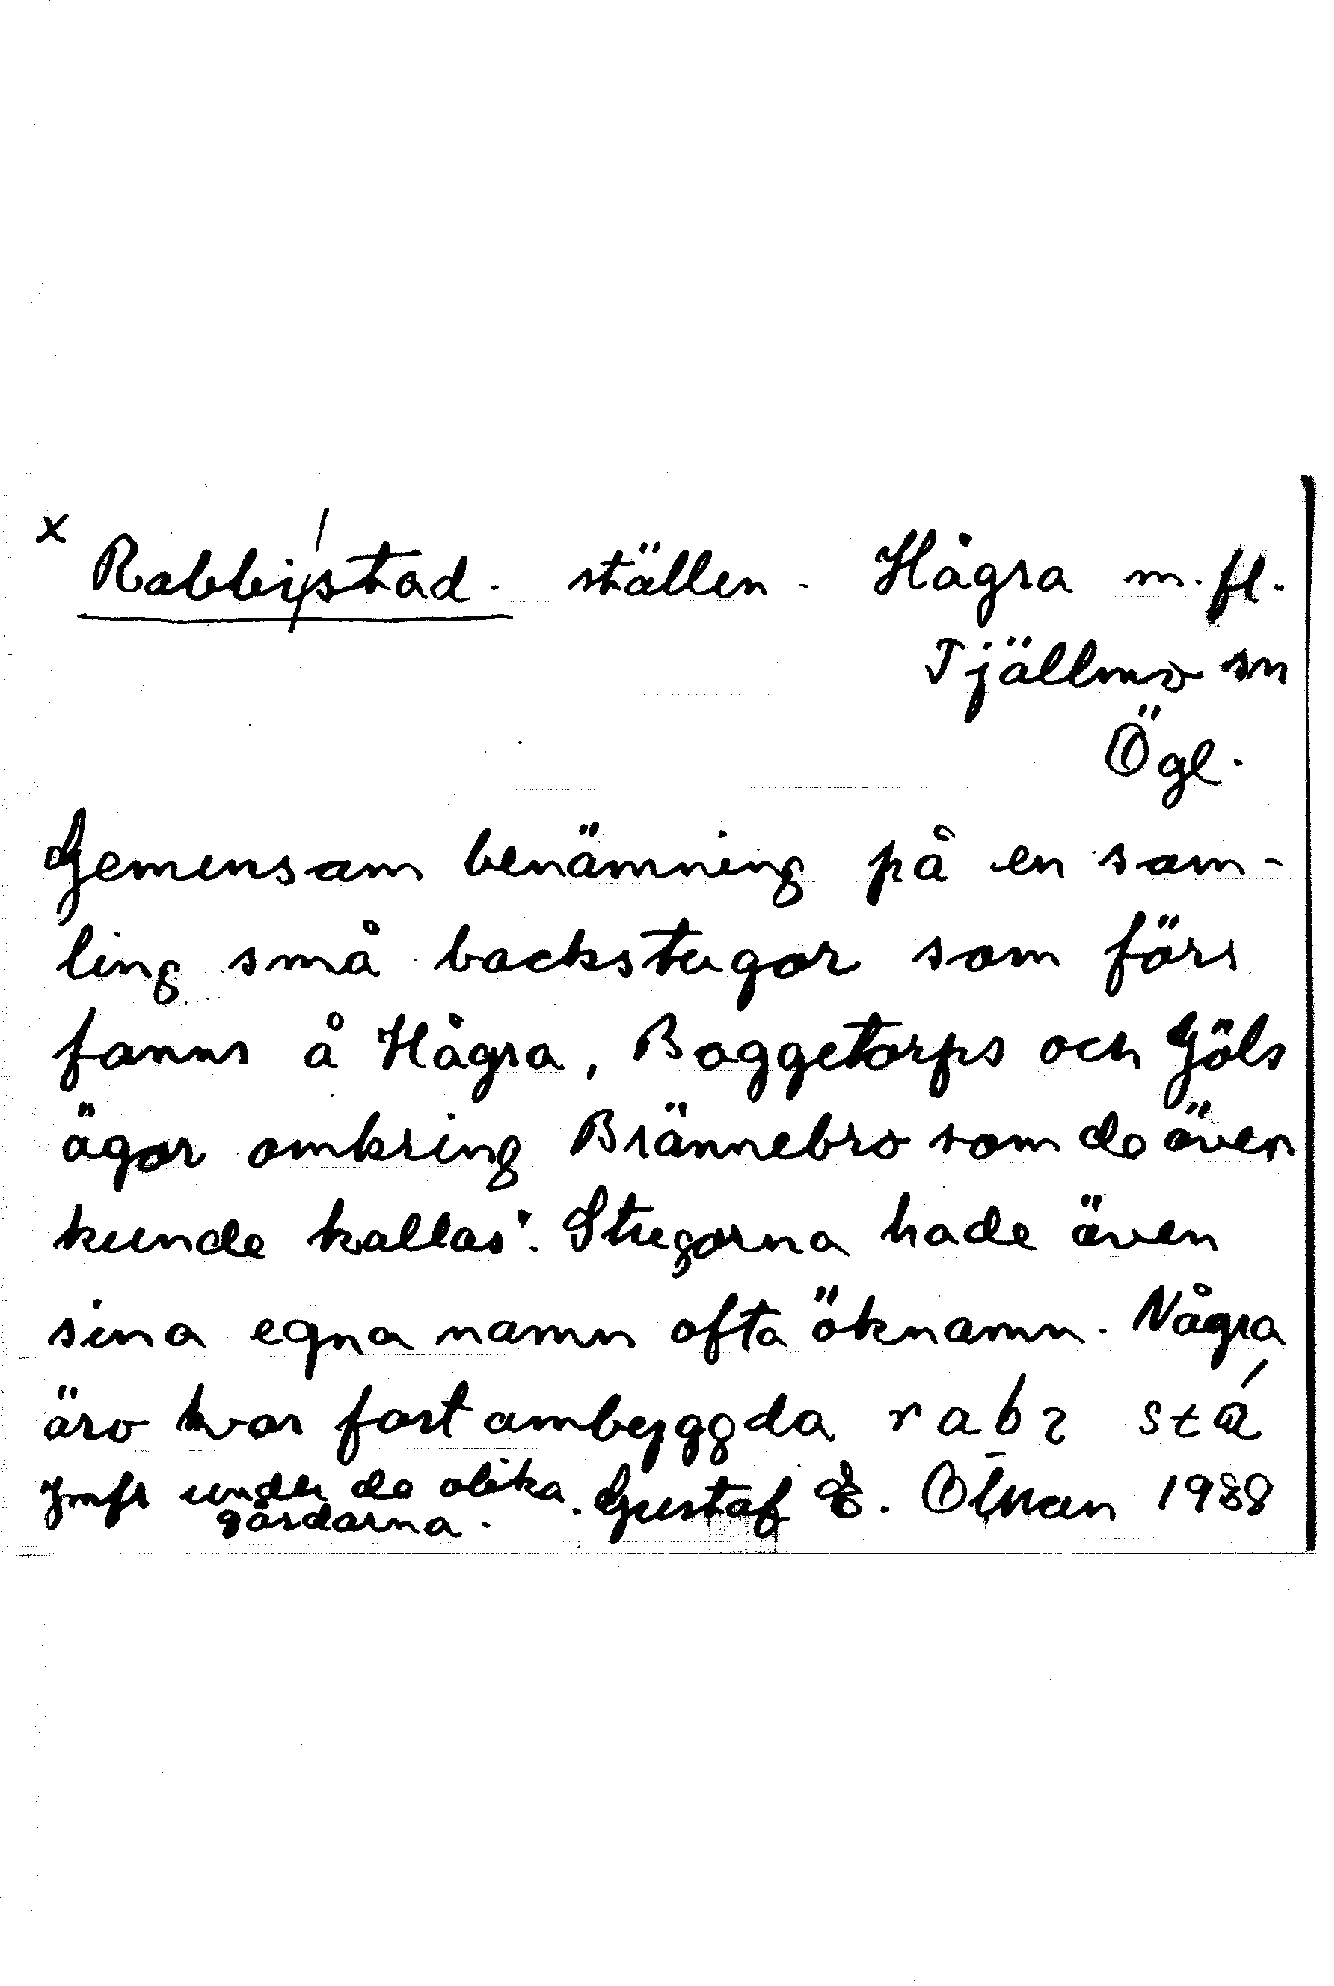 x Rabbistad. ställen. Hågra m. fl.
Tjällmo sn
Ögl.
Gemensam benämning på en sam-
ling små backstugor som förr
fanns å Hågra, Baggetorps och Göls
ägor omkring Brännebro som de även
kunde kallas. Stugorna hade även
sina egna namn ofta öknamn. Några
äro kvar fast ombyggda
Jmfr under de olika
gårdarna. Gustaf E. 1988